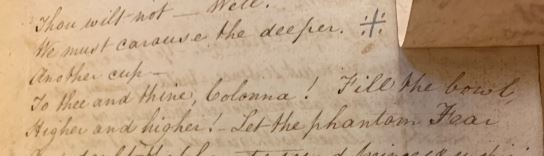 Thou wilt not — Well.
We must carouse the deeper.
Another cup —
To thee and thine, Colonna! Fill the bowl,
Higher and higher! — Let the phantom Fear